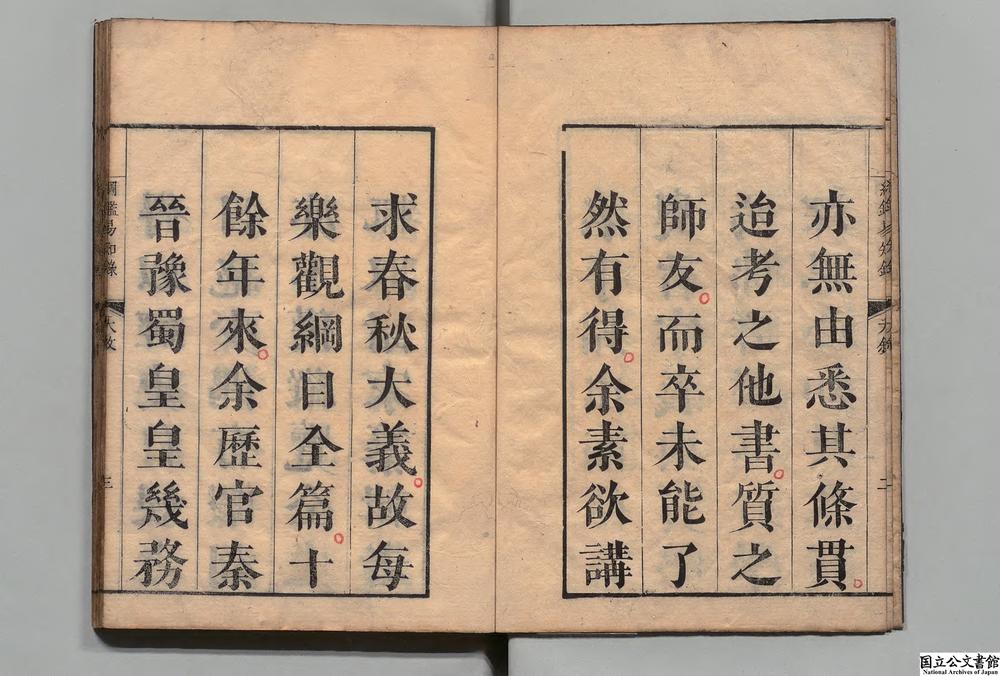 亦無由悉其條貫
迨考之他書質之
師友而卒未能了
然有得余素欲講
求春秋大義故每
樂觀綱目全篇十
餘年來余歷官秦
晉豫蜀皇皇幾務
二
綱鑑易知錄
三
国立公文書館
National Archives of Japan